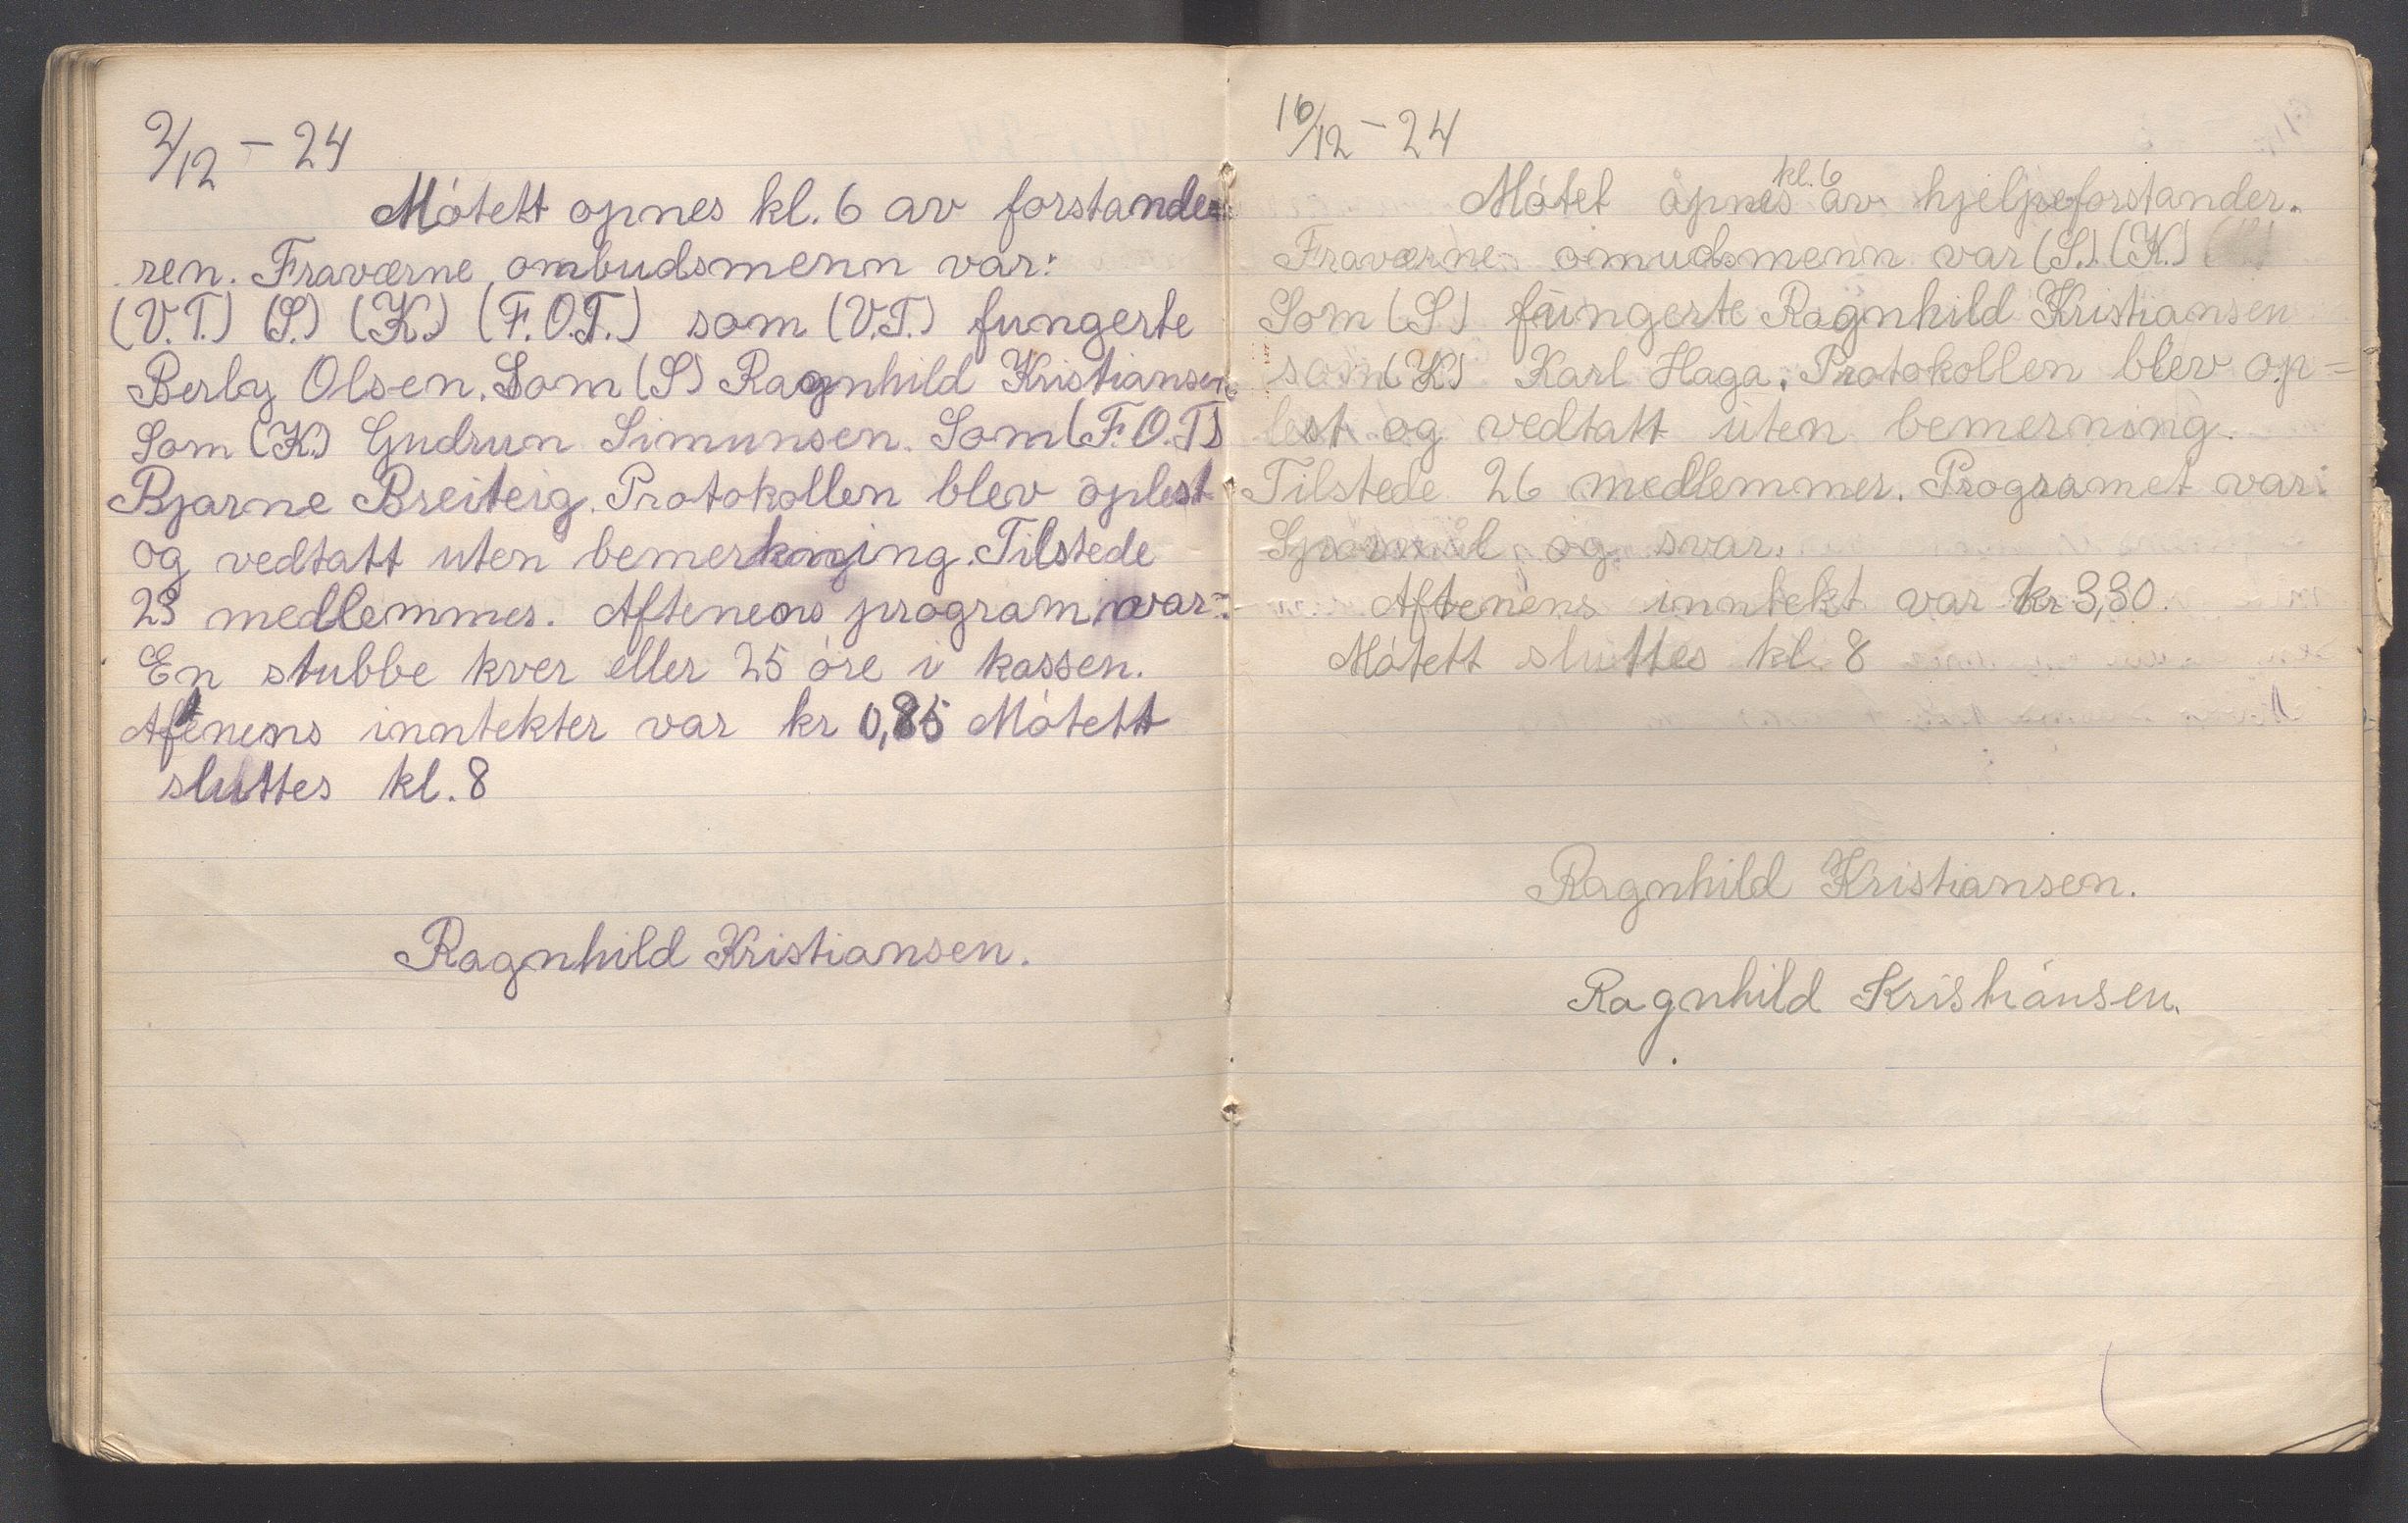 2/12 - 24
Mótett opnes kl. 6 av forstande
ren. Fraværne ombudsmenn var:
(V.T.) (S.) (K.) (F.O.T.) som (V.T.) fungerte
Berly Olsen. Som (S) Ragnhild Kristiansen
Som (K.) Gudrun Simunsen. Som (F.O.T)
Bjarne Breiteig. Protokollen blev oplest
og vedtatt uten bemerkning. Tilstede
23 medlemmer. Aftenens program var:
En stubbe kver eller 25 óre i kassen.
Aftenens inntekter var kr 0,85 Mótett
sluttes kl. 8
Ragnhild Kristiansen.
16/12 - 24
Mótet opnes kl. 6 av hjelpeforstander.
Fraværne omudsmenn var (S.) (K.)
Som (S) fungerte Ragnhild Kristiansen
som (K) Karl Haga. Protokollen blev op=
lest og vedtatt uten bemerning.
Tilstede 26 medlemmer. Programet var:
Spørsmål og svar.
Aftenens inntekt var kr 3,30.
Mótett sluttes kl. 8
Ragnhild Kristiansen.
Ragnhild Kristiansen.